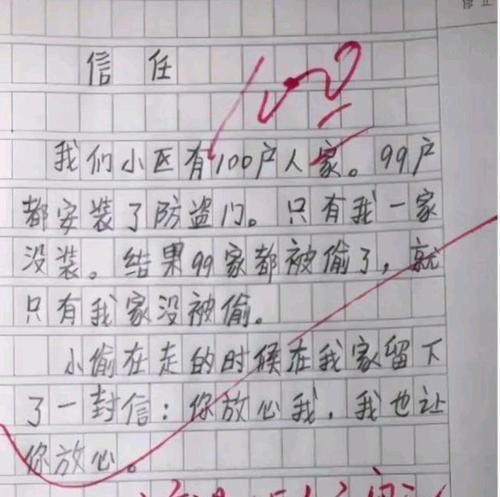 信任
100
我们小区有100户人家。99户
都安装了防盗门。只有我一家
没装。结果99家都被偷了，就
只有我家没被偷。
小偷在走的时候在我家留下
了一封信：你放心我，我也让
你放心。